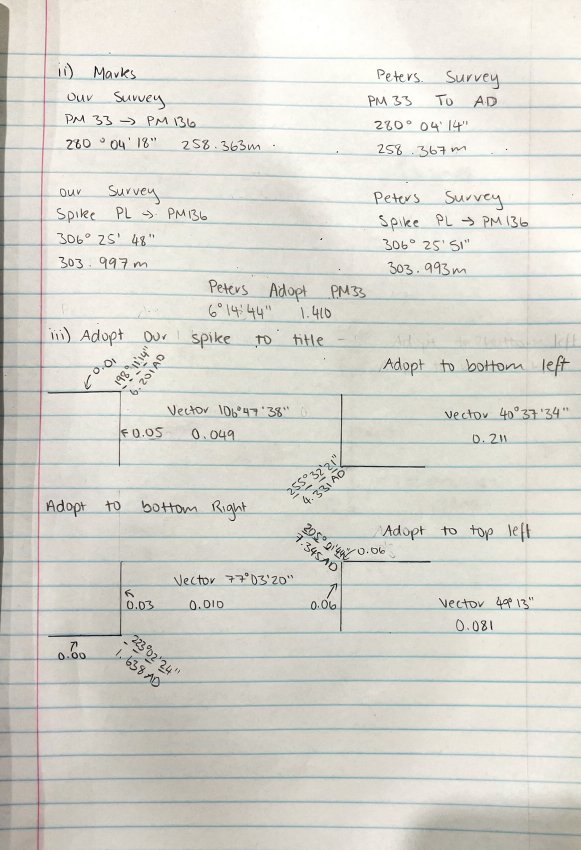 ii) Marks
Our Survey
PM 33 → PM 136
280° 04' 18" 258.363m
Peters Survey
PM 33 To AD
280° 04' 14"
258.367m
our Survey
Spike PL → PM136
306° 25' 48"
303.997m
Peters Survey
Spike PL → PM136
306° 25' 51"
303.993m
Peters Adopt PM33
6°14'44" 1.410
iii) Adopt our spike to title -
0.01
198°11'14"
6.201AD
Vector 106°47'38"
0.05 0.049
Adopt to bottom left
Vector 40°37'34"
0.211
255°32'21"
4.331 AD
Adopt to bottom Right
Vector 77°03'20"
0.03 0.010
0.00
223°02'24"
1.638 AD
Adopt to top left
7.345AD
0.06
0.06
Vector 49°13"
0.081